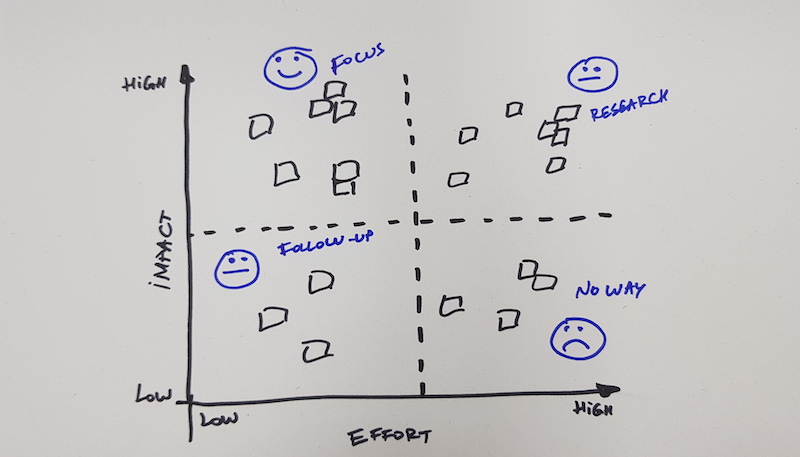 FOCUS
HIGH
RESEARCH
IMPACT
FOLLOW-UP
NO WAY
LOW
LOW
HIGH
EFFORT